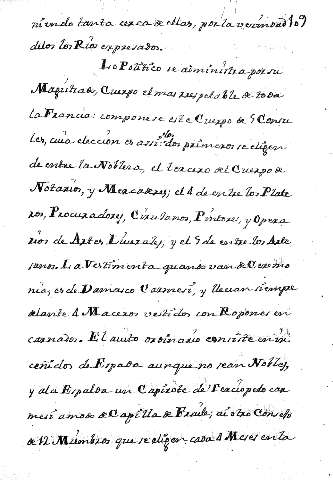 niendo tanta cerca de ellas, por la vecindad 109
de los los Rios expresados.
Lo Politico se administra por su
Magistrado, Cuerpo el mas respetable de toda
la Francia: componese este Cuerpo de 5 Consu
les, cuia eleccion es assi: los dos primeros se eligen
de entre la Nobleza, el tercero del Cuerpo de
Notarios, y Mercaderes; el 4 de entre los Plate
ros, Procuradores, Cirujanos, Pintores, y Opera
rios de Artes Liverales, y el 5 de entre los Arte
sanos. La Vestimenta quando van de Ceremo
nia, es de Damasco Carmesi, y llevan siempre
delante 4 Maceros vestidos con Ropones en
carnados. El auito ordinario consiste en ir
ceñidos de Espada aunque no sean Nobles,
y a la Espalda un Capirote de Terciopelo car
mesi a modo de Capilla de Fraile; ai otro Consejo
de 12 Miembros que se eligen cada 4 Meses en la